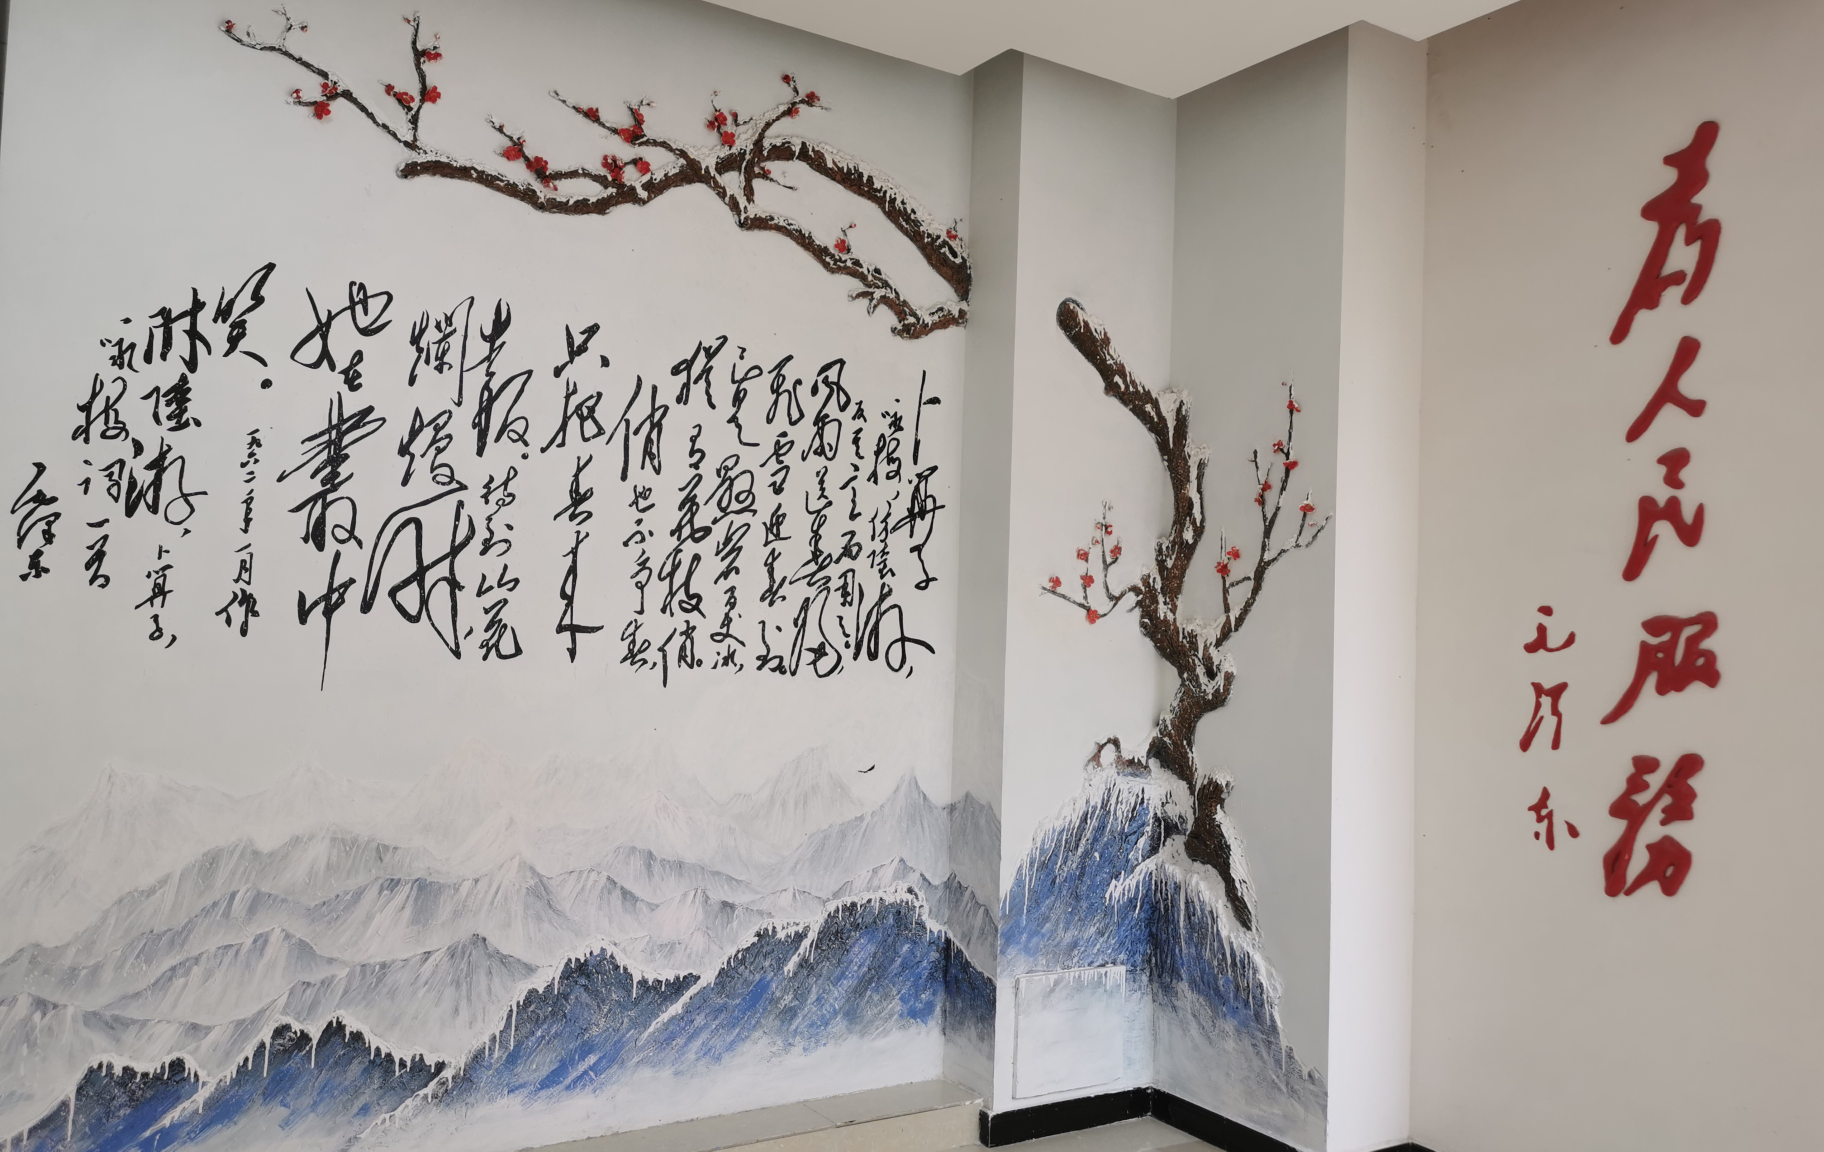 为人民服務
毛泽东
卜算子
咏梅 依陸游,
反其意而用之。
风雨送春归,
飛雪迎春到。
已是懸岩百丈冰,
犹有花枝俏。
俏也不争春,
只把春来
报。待到山花
爛熳时
她在叢中
笑。 一九六二年一月作
附陸游,卜算子,
咏梅词一首
毛泽东